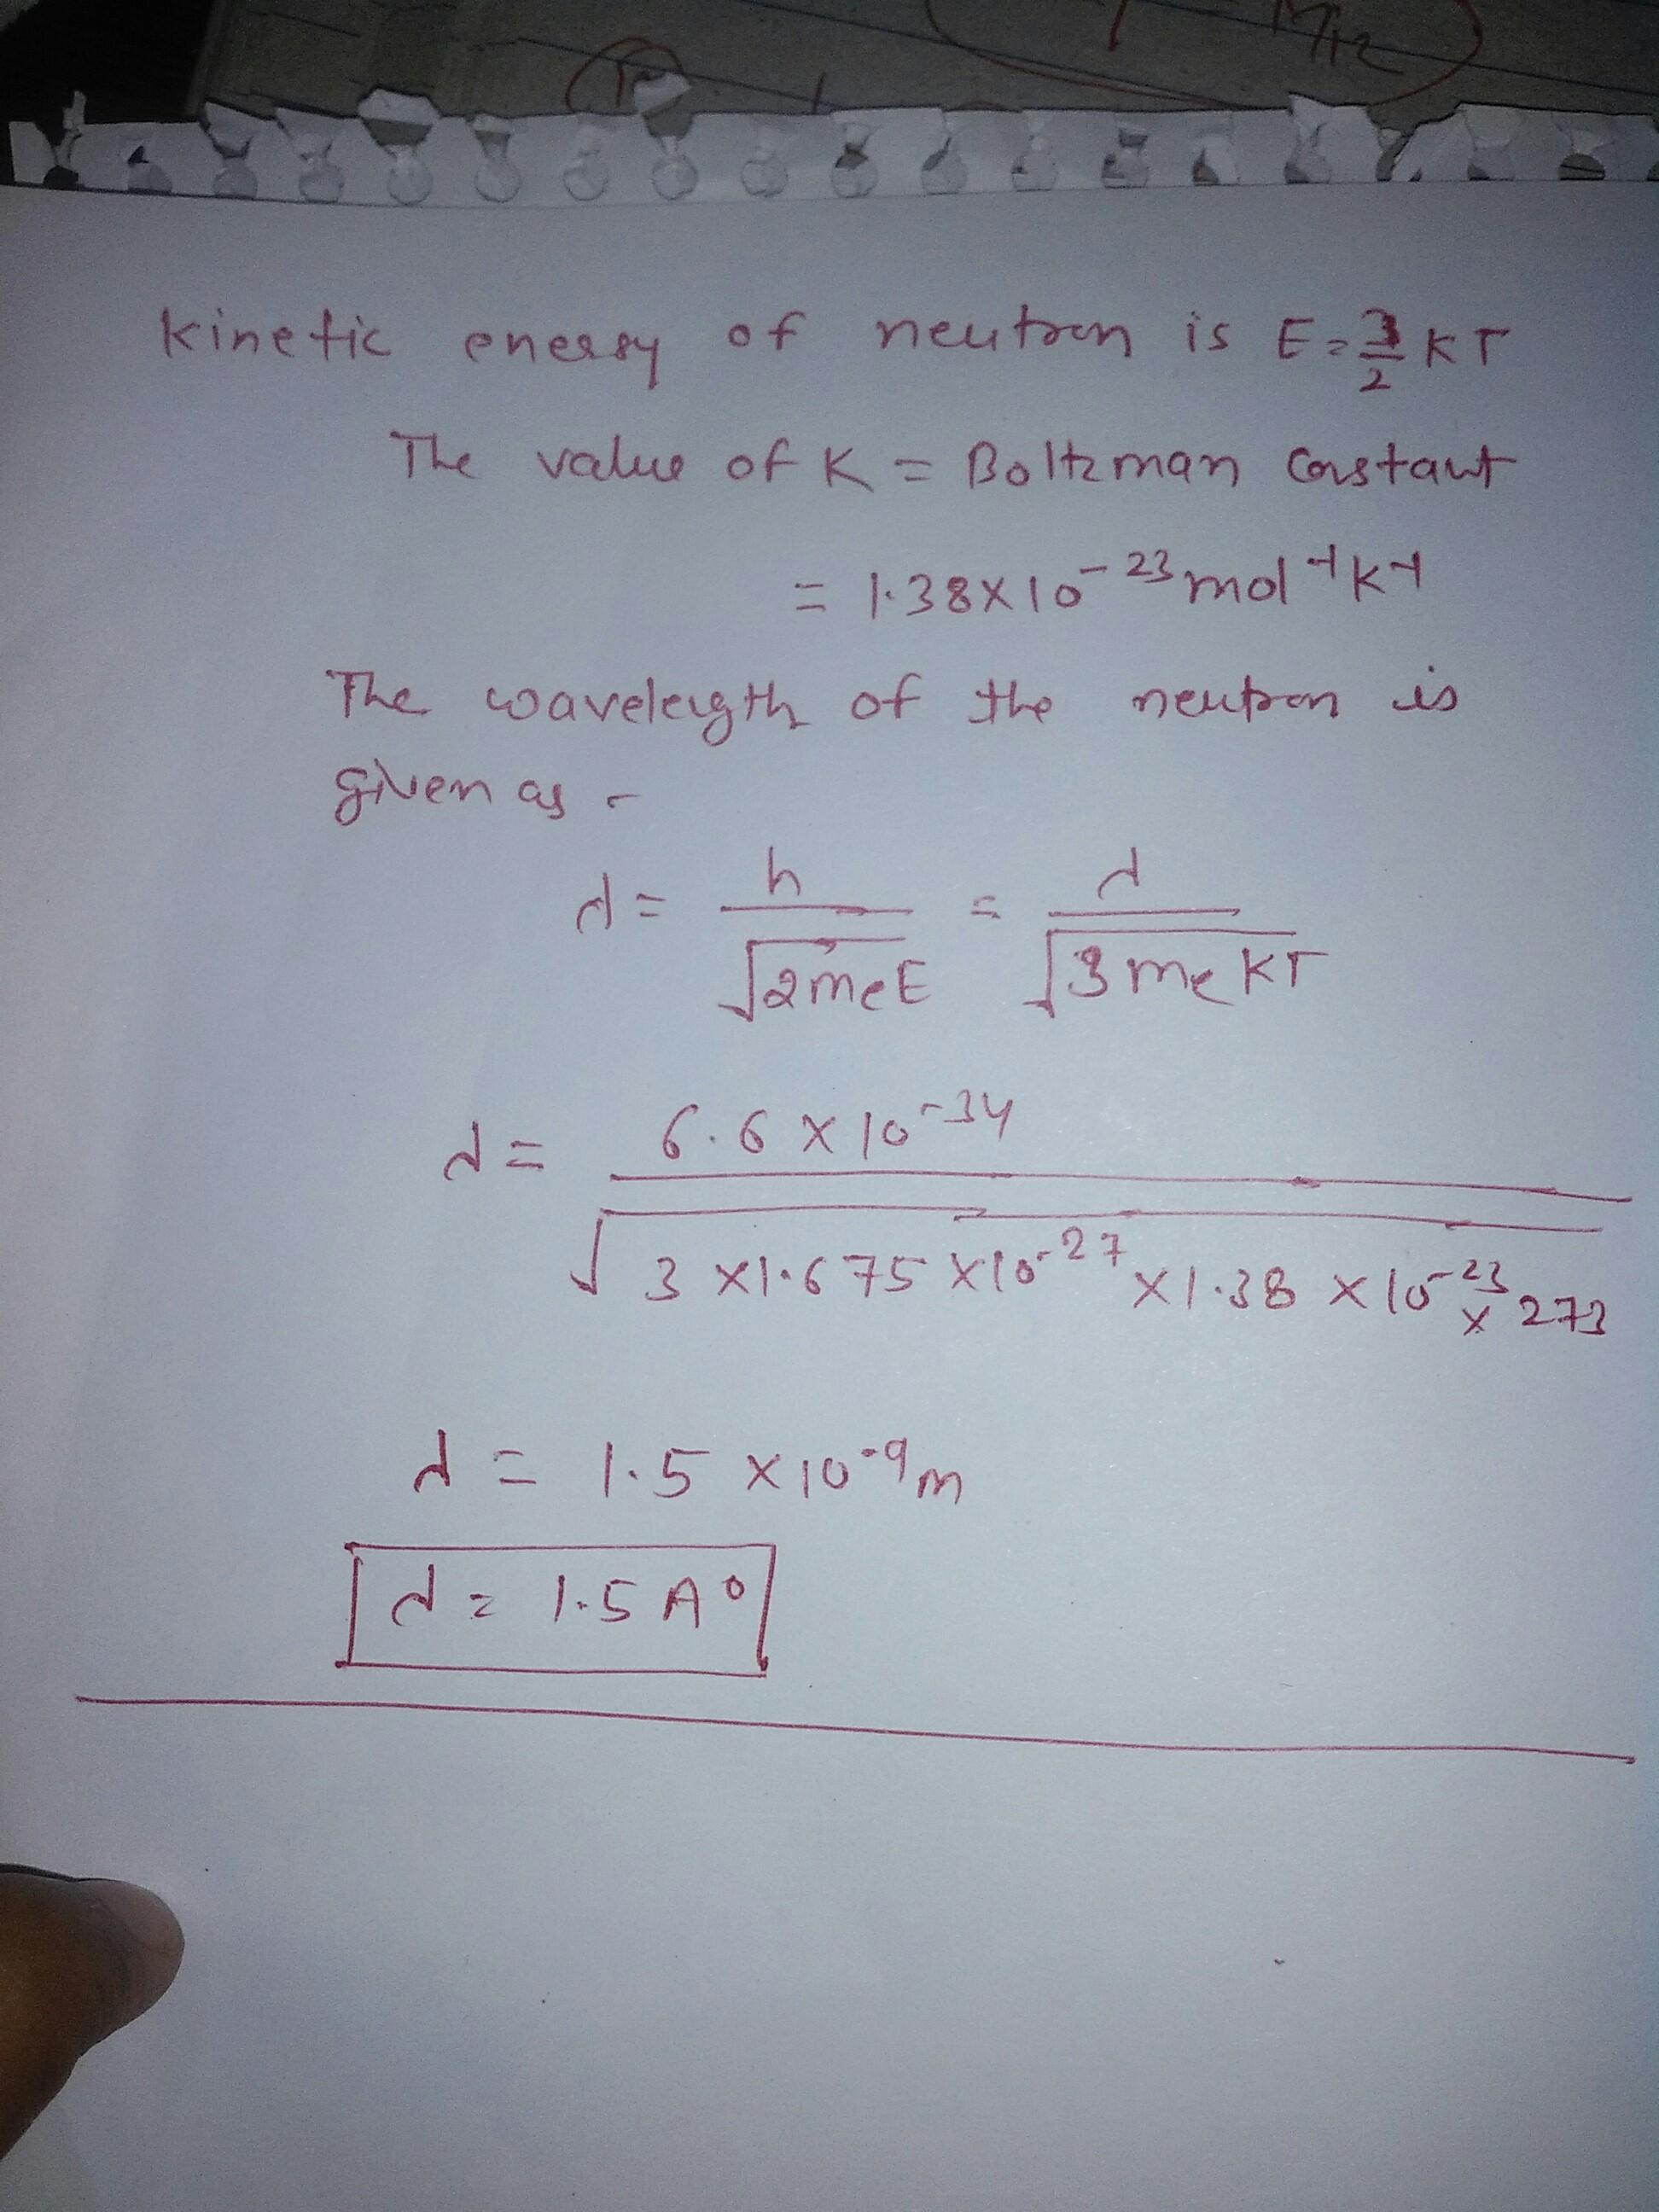 M12
Kinetic energy of neutron is E = 3/2 KT
The value of K = Boltzman Constant
= 1.38×10⁻²³ mol⁻¹ K⁻¹
The wavelength of the neutron is
given as -
λ = h/√2meE = λ/√3meKT
λ = 6.6 × 10⁻³⁴/√3 × 1.675 × 10⁻²⁷ × 1.38 × 10⁻²³ × 273
λ = 1.5 × 10⁻⁹ m
λ = 1.5 A°